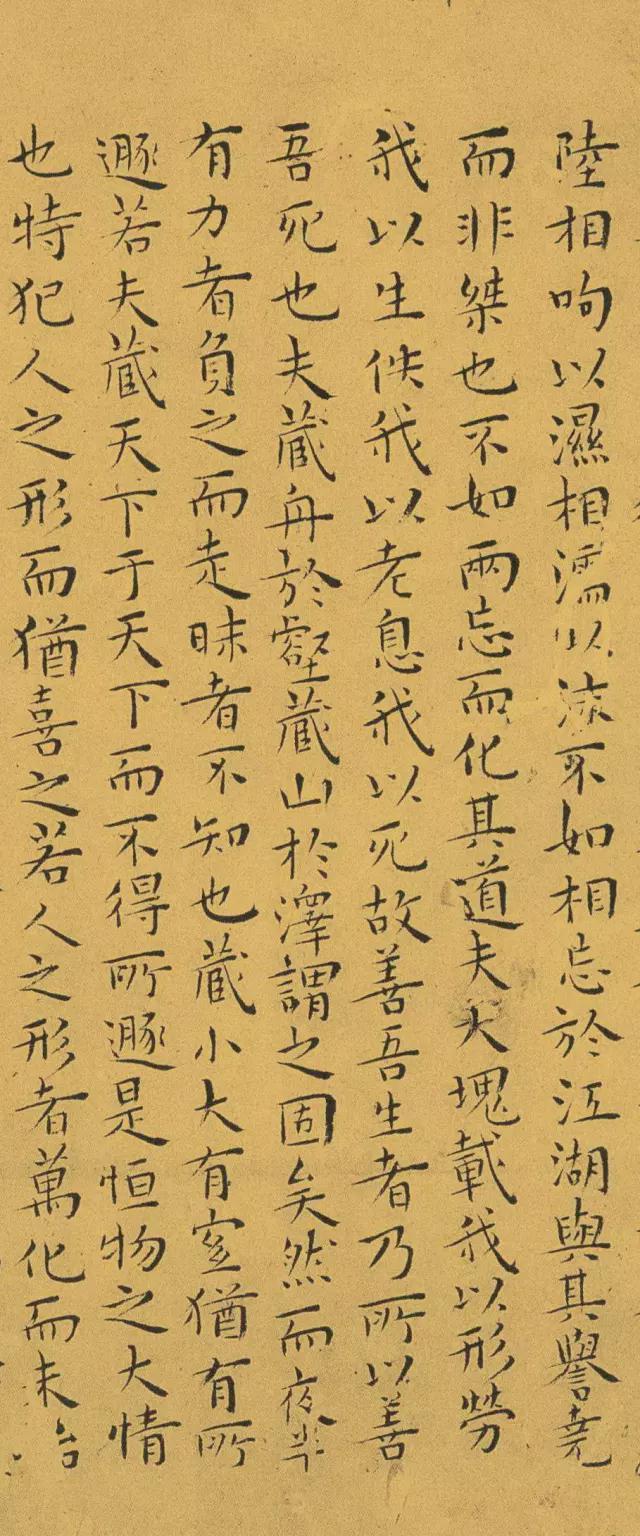 陸相呴以濕相濡以沫不如相忘於江湖與其譽堯
而非桀也不如兩忘而化其道夫大塊載我以形勞
我以生佚我以老息我以死故善吾生者乃所以善
吾死也夫藏舟於壑藏山於澤謂之固矣然而夜半
有力者負之而走昧者不知也藏小大有宜猶有所
遯若夫藏天下于天下而不得所遯是恒物之大情
也特犯人之形而猶喜之若人之形者萬化而未始